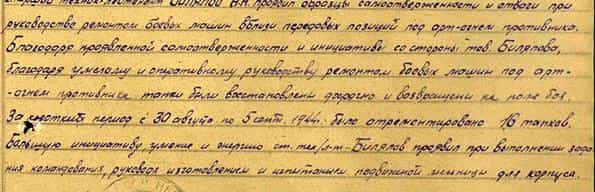 техник-лейтенант Билялов А.Н. проявил образцы самоотверженности и отваги при
руководстве ремонтом боевых машин вблизи передовых позиций под арт-огнем противника.
Благодаря проявленной самоотверженности и инициативы со стороны тов. Билялова,
благодаря умелому и оперативному руководству ремонтом боевых машин под арт-
-огнем противника танки были восстановлены досрочно и возвращены на поле боя.
За короткий период с 30 августа по 5 сент. 1944г. было отремонтировано 16 танков.
Большую инициативу, умение и энергию ст. тех/л-т Билялов проявил при выполнении зада-
ния командования, руководя изготовлением и испытанием подвижной мельницы для корпуса.